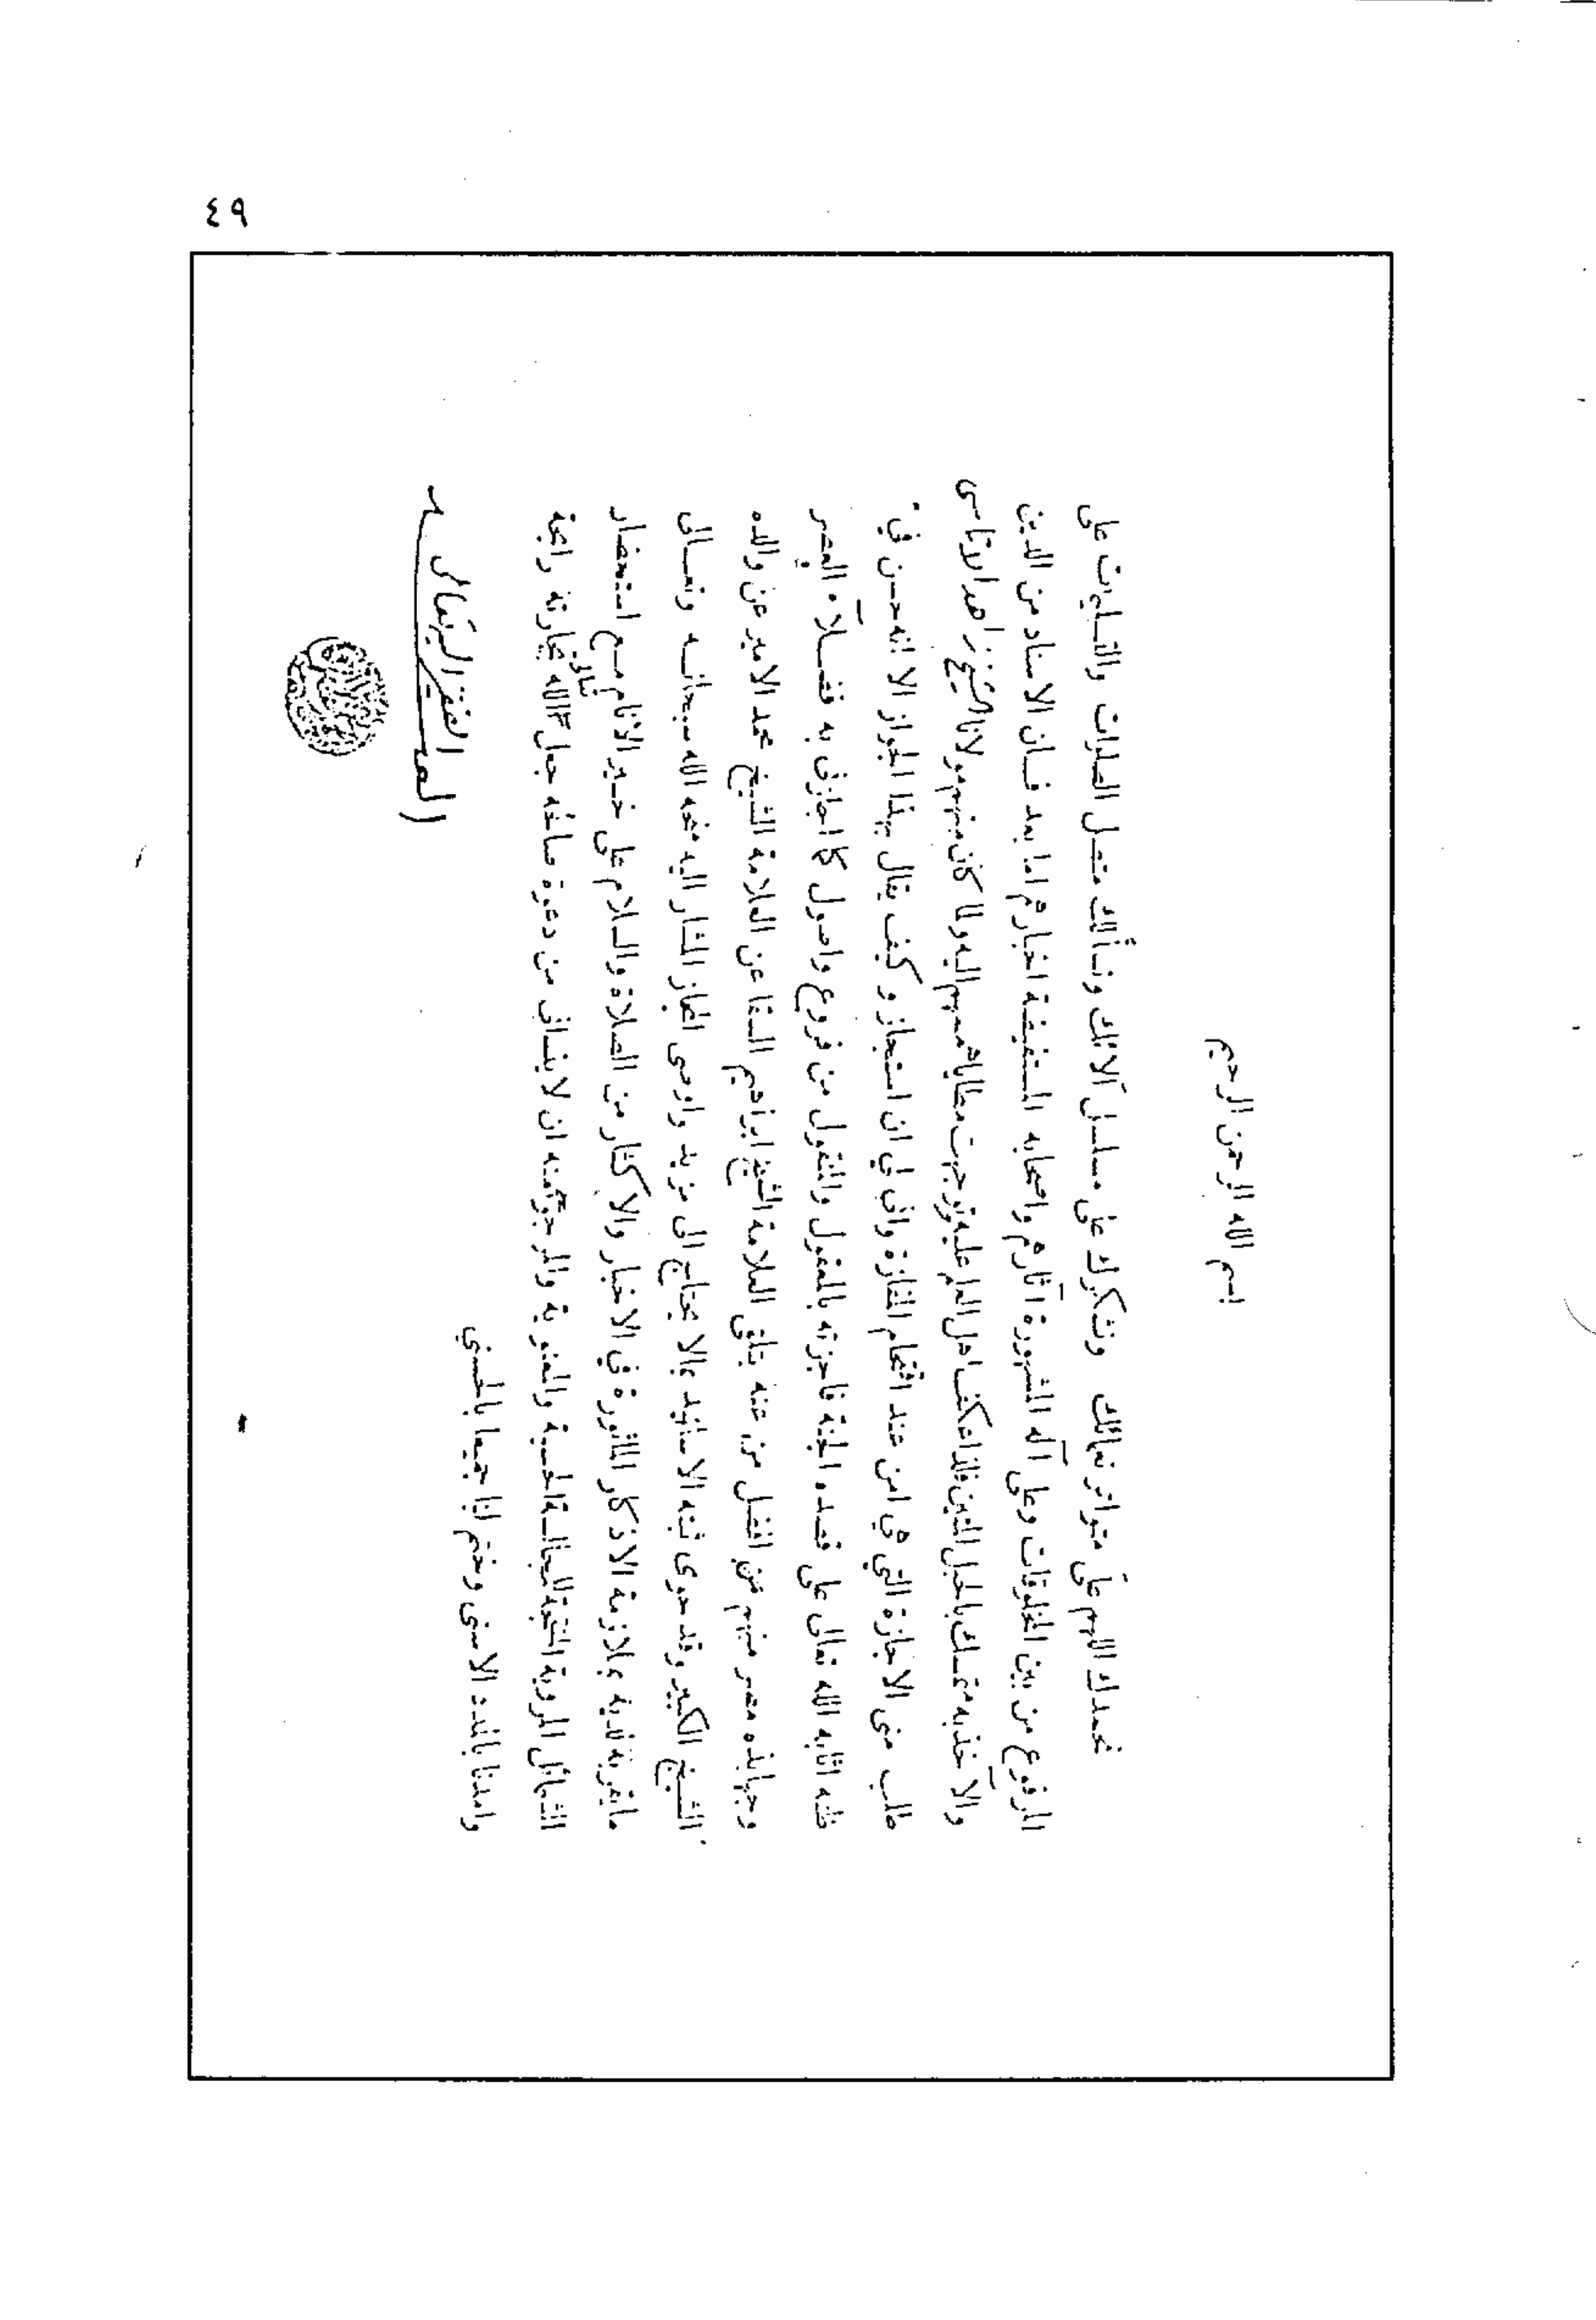 ٤٩
بسم الله الرحمن الرحيم
نحمدك اللهم على متواتر نعمائك ونشكرك على مسلسل آلائك ونسألك متصل الصلوات والتسليمات على
المرفوع من بين المخلوقات وعلى آله المشهورة آثارهم واصحابه المستفيضة اخبارهم اما بعد فان الاسناد من الدين
والآخذ به متمسك بالحبل المتين فلذا عكف اهل العلم عليه وتوجهت مطايا هممهم اليه ولما كان منهم مولانا الشيخ زاهد
طلب منى الاجازة التي هي امن عند اقتحام المفازة وانى لي ان استجاز وكيف يقال بهذا الجواز الا انه حسن في
ظنه اثابه الله تعالى على قصده الجنة فاجزته بالمعقول والمنقول من فروع واصول كما اجازنى به فضلآء العصر
وجهابذه مصر منهم بدر الفضل من عنه يتلقى العلامة الشيخ ابراهيم السقا عن العلامة الشيخ محمد الامير عن والده
الشيخ الكبير وقد حوى ثبته الاسانيد بمالا يحتاج الى مزيد واوصى المجاز المشار اليه منحه الله سبحانه وتعالى
ما يقر به لديه بملازمة الاذكار المأثورة في الاخبار والاكثار من الصلاة والسلام على خير الانام مع استحضار
الشمائل المروية المنتجة للمجالسة الحسية والمعنوية والمرجو منه ان لا ينسانى من دعوة صالحه جعل الله تعالى تجارته رابحة
وامدنا بالمدد الاسنى وختم لنا جميعا بالحسنى
الفقير